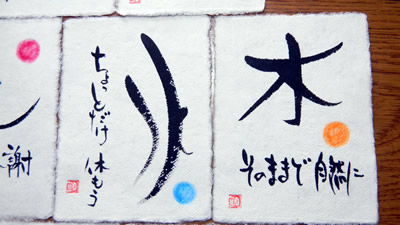 木
そのままで自然に
ちょっとだけ 休もう
謝